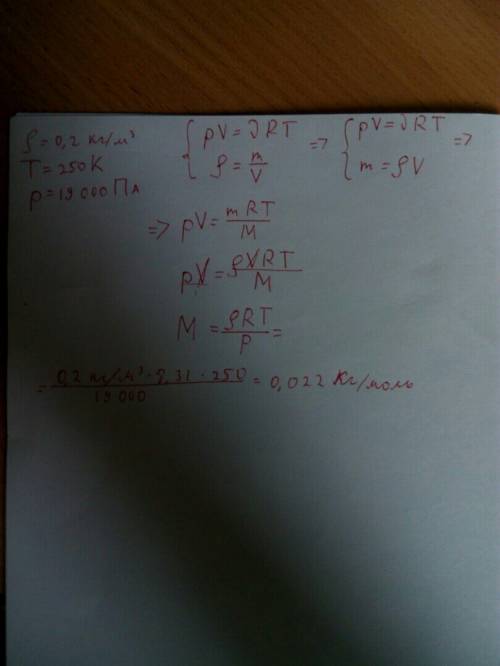 ρ = 0,2 кг/м³
T = 250 K
p = 19 000 Па
{ pV = νRT => { pV = νRT =>
{ ρ = m/V { m = ρV
=> pV = mRT/M
pV = ρVRT/M
M = ρRT/p =
= 0,2 кг/м³ · 8,31 · 250 / 19 000 = 0,022 кг/моль